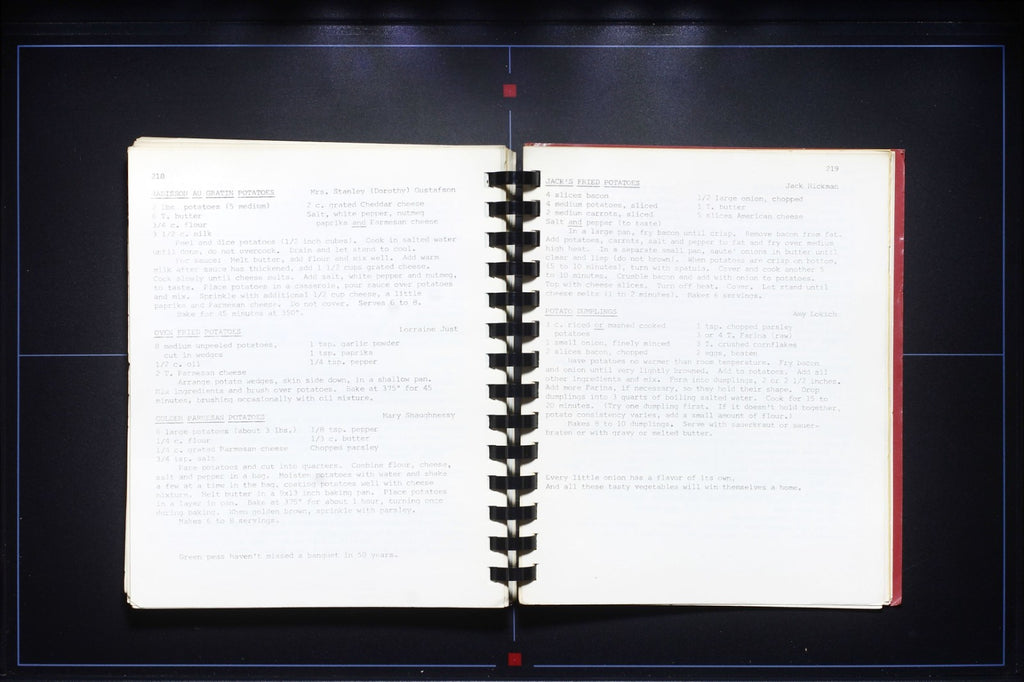 218
MADISON AU GRATIN POTATOES Mrs. Stanley (Dorothy) Gustafson
2 lbs. potatoes (5 medium) 2 c. grated Cheddar cheese
6 T. butter Salt, white pepper, nutmeg
3/4 c. flour paprika and Parmesan cheese
3 1/2 c. milk
Peel and dice potatoes (1/2 inch cubes). Cook in salted water
until done, do not overcook. Drain and let stand to cool.
For sauce: Melt butter, add flour and mix well. Add warm
milk after sauce has thickened, add 1 1/2 cups grated cheese.
Cook slowly until cheese melts. Add salt, white pepper and nutmeg,
to taste. Place potatoes in a casserole, pour sauce over potatoes
and mix. Sprinkle with additional 1/2 cup cheese, a little
paprika and Parmesan cheese. Do not cover. Serves 6 to 8.
Bake for 45 minutes at 350°.
OVEN FRIED POTATOES Lorraine Just
8 medium unpeeled potatoes, 1 tsp. garlic powder
cut in wedges 1 tsp. paprika
1/2 c. oil 1/4 tsp. pepper
2 T. Parmesan cheese
Arrange potato wedges, skin side down, in a shallow pan.
Mix ingredients and brush over potatoes. Bake at 375° for 45
minutes, brushing occasionally with oil mixture.
GOLDEN PARMESAN POTATOES Mary Shaughnessy
6 large potatoes (about 3 lbs.) 1/8 tsp. pepper
1/4 c. flour 1/3 c. butter
1/4 c. grated Parmesan cheese Chopped parsley
3/4 tsp. salt
Pare potatoes and cut into quarters. Combine flour, cheese,
salt and pepper in a bag. Moisten potatoes with water and shake
a few at a time in the bag, coating potatoes well with cheese
mixture. Melt butter in a 9x13 inch baking pan. Place potatoes
in a layer in pan. Bake at 375° for about 1 hour, turning once
during baking. When golden brown, sprinkle with parsley.
Makes 6 to 8 servings.
Green peas haven't missed a banquet in 50 years.
219
JACK'S FRIED POTATOES Jack Hickman
4 slices bacon 1/2 large onion, chopped
4 medium potatoes, sliced 1 T. butter
2 medium carrots, sliced 5 slices American cheese
Salt and pepper (to taste)
In a large pan, fry bacon until crisp. Remove bacon from fat.
Add potatoes, carrots, salt and pepper to fat and fry over medium
high heat. In a separate small pan, saute' onions in butter until
clear and limp (do not brown). When potatoes are crisp on bottom,
(5 to 10 minutes), turn with spatula. Cover and cook another 5
to 10 minutes. Crumble bacon and add with onion to potatoes.
Top with cheese slices. Turn off heat. Cover. Let stand until
cheese melts (1 to 2 minutes). Makes 6 servings.
POTATO DUMPLINGS Amy Loksch
3 c. riced or mashed cooked 1 tsp. chopped parsley
potatoes 3 or 4 T. Farina (raw)
1 small onion, finely minced 3 T. crushed cornflakes
2 slices bacon, chopped 2 eggs, beaten
Have potatoes no warmer than room temperature. Fry bacon
and onion until very lightly browned. Add to potatoes. Add all
other ingredients and mix. Form into dumplings, 2 or 2 1/2 inches.
Add more Farina, if necessary, so they hold their shape. Drop
dumplings into 3 quarts of boiling salted water. Cook for 15 to
20 minutes. (Try one dumpling first. If it doesn't hold together,
potato consistency varies, add a small amount of flour.)
Makes 8 to 10 dumplings. Serve with sauerkraut or sauer-
braten or with gravy or melted butter.
Every little onion has a flavor of its own,
And all these tasty vegetables will win themselves a home.